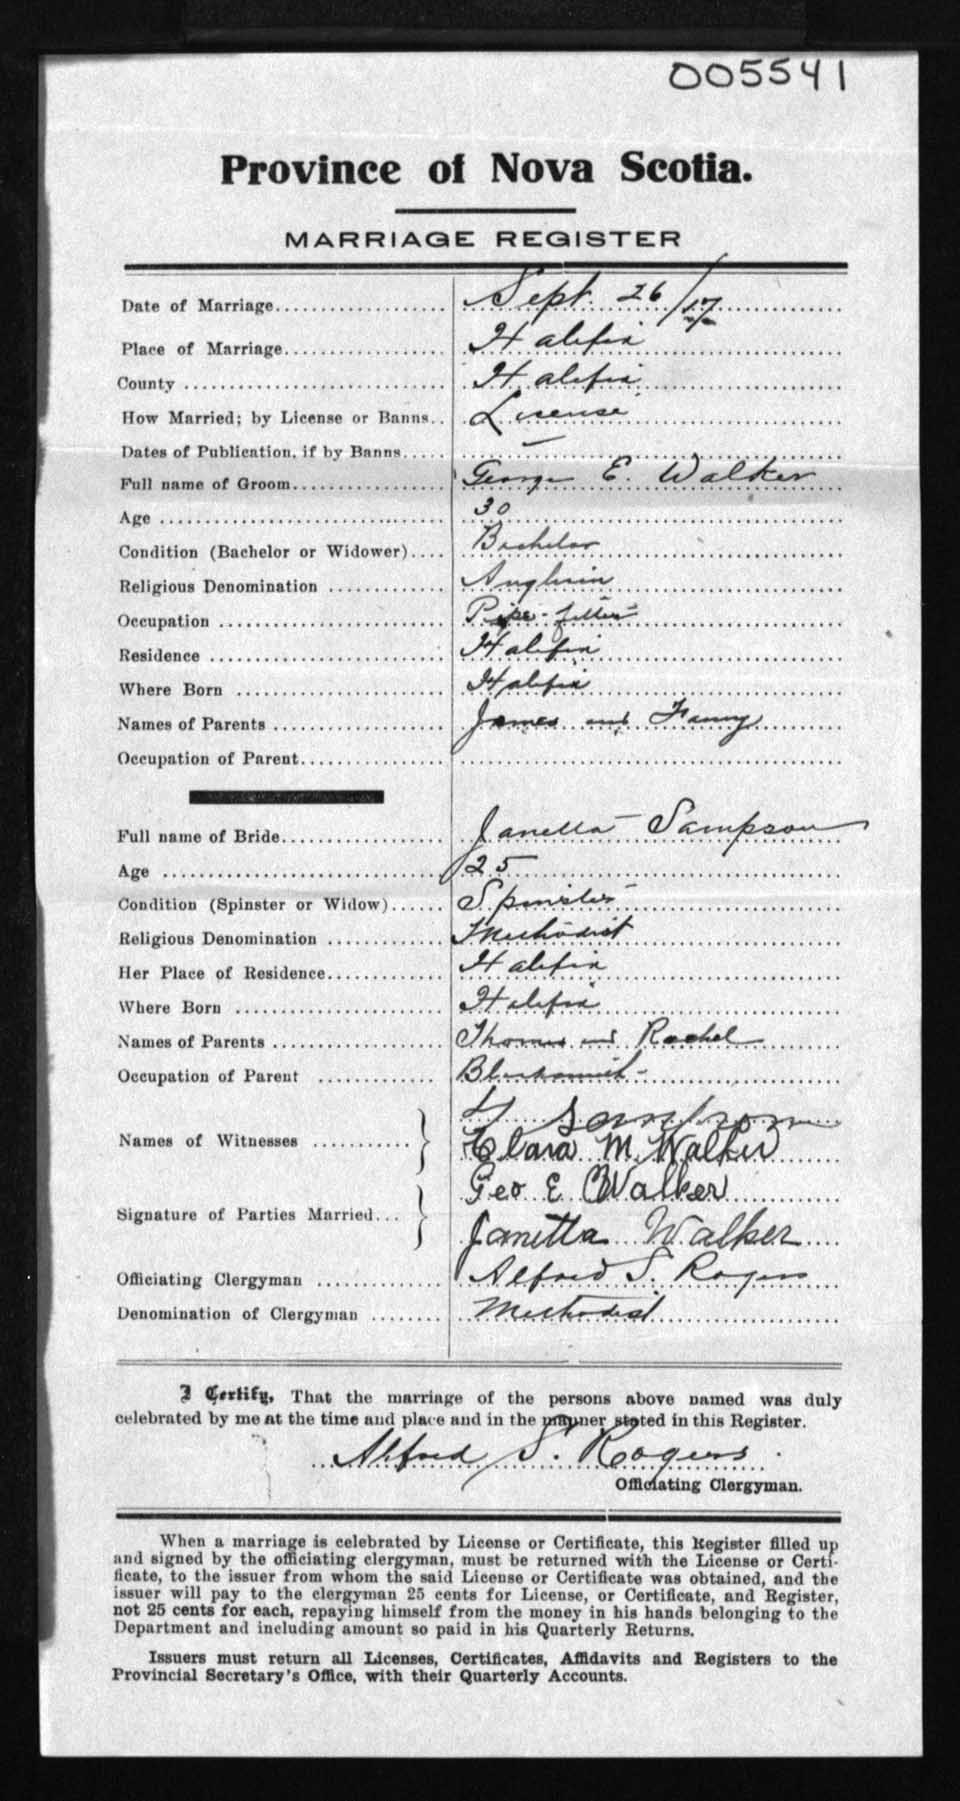 005541
Province of Nova Scotia.
MARRIAGE REGISTER
Date of Marriage Sept. 26/17
Place of Marriage Halifax
County Halifax
How Married; by License or Banns License
Dates of Publication, if by Banns —
Full name of Groom George E. Walker
Age 30
Condition (Bachelor or Widower) Bachelor
Religious Denomination Anglican
Occupation Pipe-fitter
Residence Halifax
Where Born Halifax
Names of Parents James and Fanny
Occupation of Parent
Full name of Bride Janetta Sampson
Age 25
Condition (Spinster or Widow) Spinster
Religious Denomination Methodist
Her Place of Residence Halifax
Where Born Halifax
Names of Parents Thomas and Rachel
Occupation of Parent Blacksmith
Sampson
Names of Witnesses Clara M. Walker
Geo E Walker
Signature of Parties Married Janetta Walker
Officiating Clergyman Alfred S. Rogers
Denomination of Clergyman Methodist
I Certify, That the marriage of the persons above named was duly
celebrated by me at the time and place and in the manner stated in this Register.
Alfred S. Rogers
Officiating Clergyman.
When a marriage is celebrated by License or Certificate, this Register filled up
and signed by the officiating clergyman, must be returned with the License or Certi-
ficate, to the issuer from whom the said License or Certificate was obtained, and the
issuer will pay to the clergyman 25 cents for License, or Certificate, and Register,
not 25 cents for each, repaying himself from the money in his hands belonging to the
Department and including amount so paid in his Quarterly Returns.
Issuers must return all Licenses, Certificates, Affidavits and Registers to the
Provincial Secretary's Office, with their Quarterly Accounts.